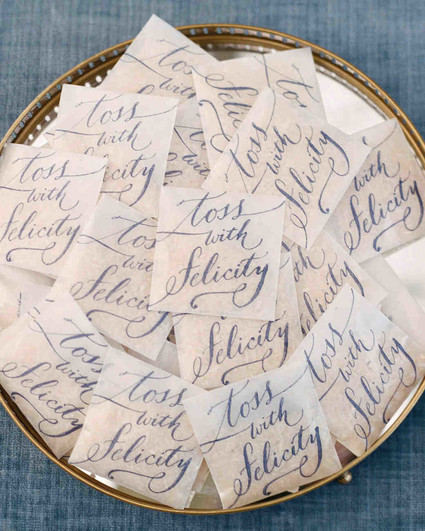 Felicity
toss
with
Felicity
toss
with
Felicity
with
Felicity
toss
with
Felicity
toss
with
Felicity
toss
with
Felicity
toss
with
Felicity
toss
with
Felicity
toss
with
Felicity